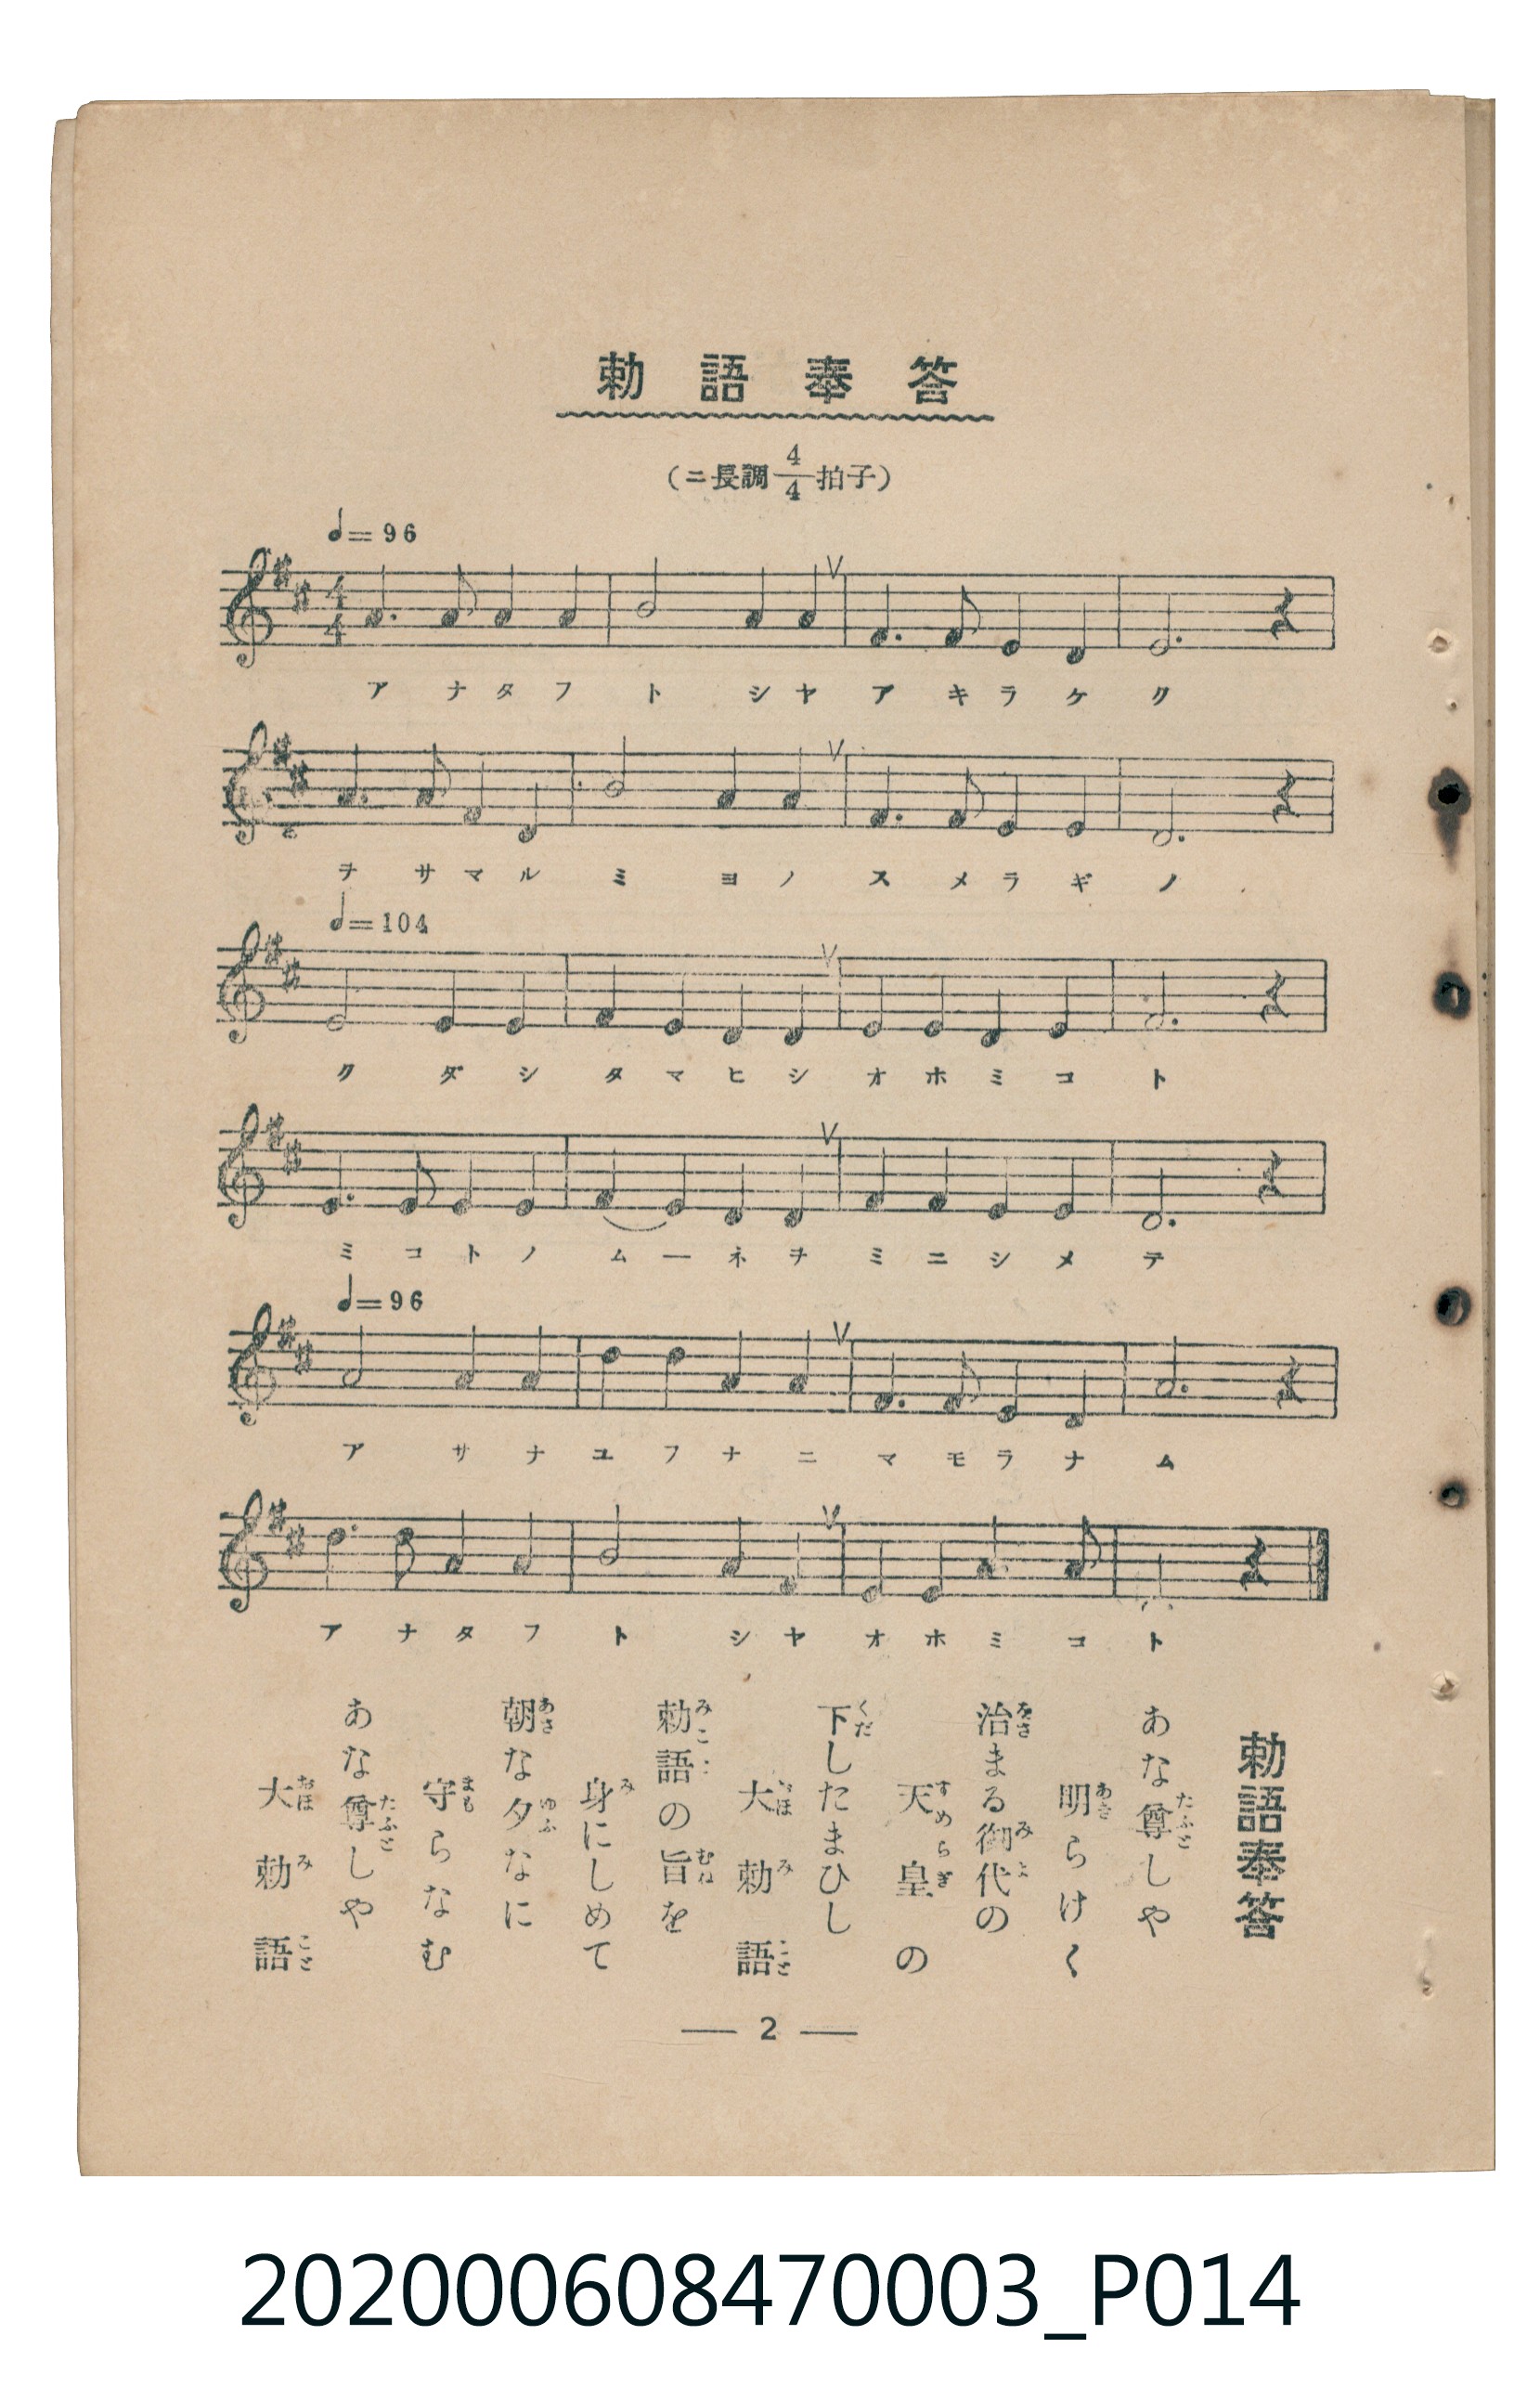 勅語奉答
(ニ長調 4/4 拍子)
𝅗𝅥=96
4/4
アナタフトシヤアキラケク
ヲサマルミヨノスメラギノ
𝅗𝅥=104
クダシタマヒシオホミコト
ミコトノムーネヲミニシメテ
𝅗𝅥=96
アサナユフナニマモラナム
アナタフトシヤオホミコト
勅語奉答
あな尊しや
明らけく
治まる御代の
天皇の
下したまひし
大勅語
勅語の旨を
身にしめて
朝な夕なに
守らなむ
あな尊しや
大勅語
— 2 —
202000608470003_P014